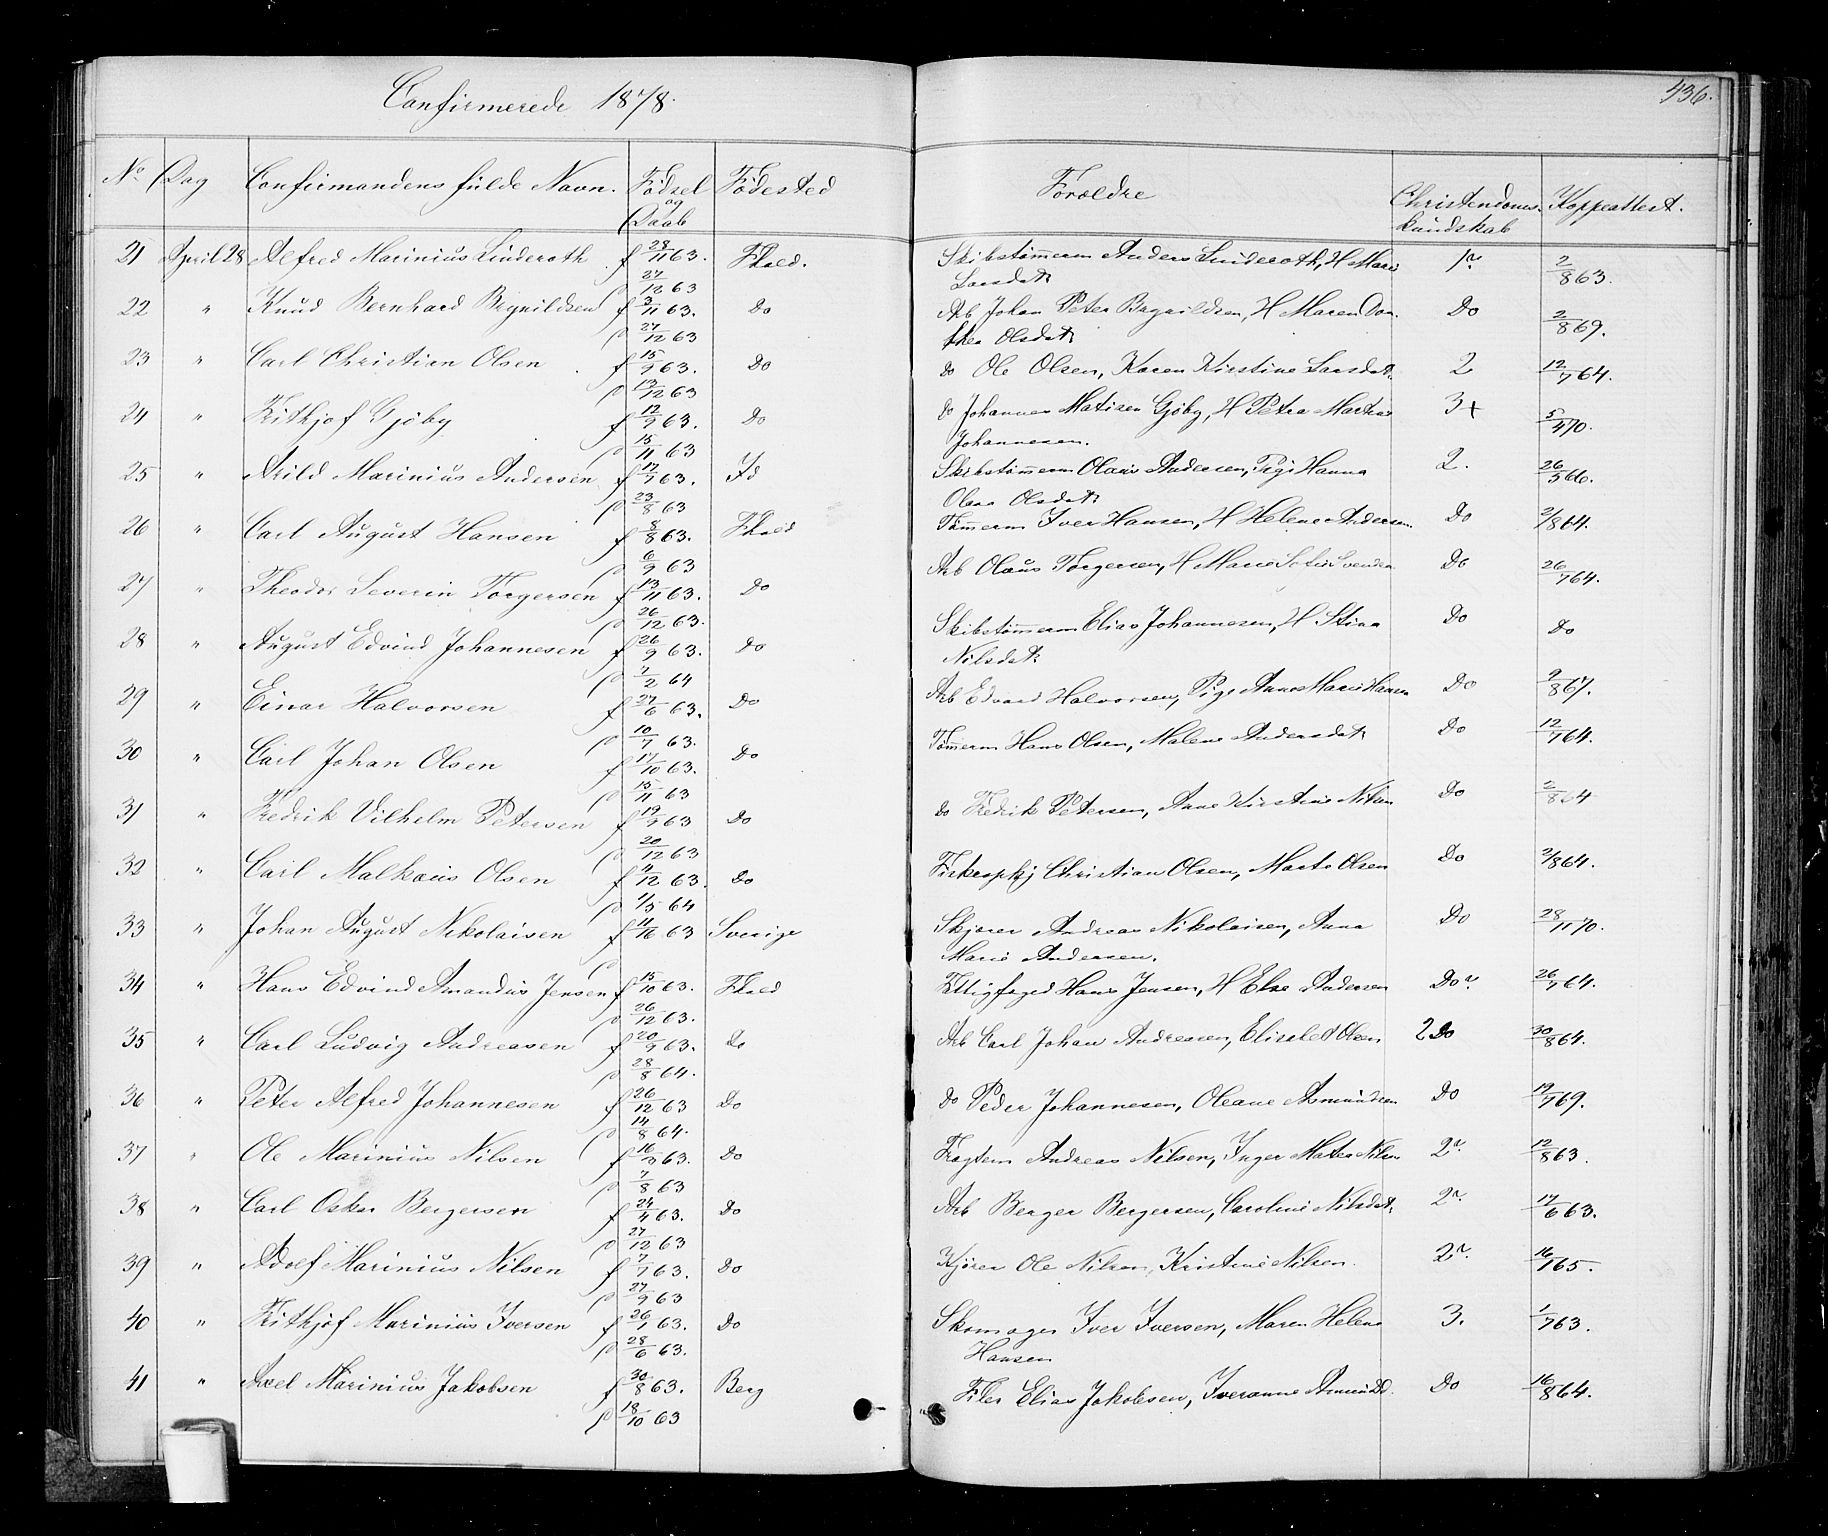 Confirmerede 1878.
436.
No Dag Confirmandens fulde Navn. Fødsel og Daab Fødested Forældre Christendoms-kundskab Koppeattest.
21 April 28 Alfred Marinius Linderoth f 28/11 63. Fhald. Skibstømerm Anders Linderoth, H Mari 1r. 2/8 63.
d 27/12 63 Larsdatr
22 " Knud Bernhard Brynildsen f 3/11 63. Do Arb Johan Peter Brynildsen, H Maren Doro Do 2/8 69.
d 27/12 63 thea Olsdatr
23 " Carl Christian Olsen f 15/9 63. Do do Ole Olsen, Karen Kirstine Larsdatr 2 12/7 64.
d 13/12 63
24 " Frithjof Gjøby f 12/9 63. Do do Johannes Matisen Gjøby, H Petra Martea 3+ 5/4 70.
d 15/11 63 Johannesen.
25 " Arild Marinius Andersen f 17/7 63. Id Skibstømerm Olaus Andersen, Pige Hanna 2. 26/5 66.
d 23/8 63 Olea Olsdatr
26 " Carl August Hansen f 8/8 63. Fhald Tømerm Iver Hansen, H Helene Andersen. Do 2/8 64.
d 6/9 63
27 " Theodor Severin Torgersen f 13/11 63. Do Arb Olaus Torgersen, H Marie Svendsen Do 26/7 64.
d 26/12 63.
28 " August Edvind Johannesen f 26/9 63. Do Skibstømerm Elias Johannesen, H Stina Do Do
d 7/2 64 Nilsdatr
29 " Einar Halvorsen f 27/6 63. Do Arb Edvard Halvorsen, Pige Anne Marie Hansen Do 2/8 67.
d 10/7 63.
30 " Carl Johan Olsen f 17/10 63. Do Tømerm Hans Olsen, Malene Andersdatr Do 12/7 64.
d 15/11 63
31 " Fredrik Vilhelm Petersen f 19/9 63 Do do Fredrik Petersen, Anne Kirstine Nilsen Do 2/8 64
d 20/12 63
32 " Carl Malkaus Olsen f 4/12 63. Do Fiskeopkj Christian Olsen, Marte Olsen Do 2/8 64.
d 1/5 64
33 " Johan August Nikolaisen f 11/10 63 Sverige Skjærer Andreas Nikolaisen, Anna Do 28/11 70.
Marie Andersen.
34 " Hans Edvind Amandus Jensen f 15/10 63. Fhald Fattigfoged Hans Jensen, H Else Andersen Do r. 26/7 64.
d 26/12 63.
35 " Carl Ludvig Andreasen f 20/9 63. Do Arb Carl Johan Andreasen, Elisabet Olsen 2 Do 30/8 64.
d 28/8 64.
36 " Peter Alfred Johannesen f 26/12 63 Do do Peder Johannesen, Oleane Asmundsen Do 19/7 69.
d 14/8 64.
37 " Ole Marinius Nilsen f 16/3 63. Do Fragtem Andreas Nilsen, Inger Matea Nilsen 2r. 12/8 63.
d 7/8 63
38 " Carl Oskar Bergersen f 24/4 63. Do Arb Berger Bergersen, Caroline Nilsdatr 2r. 17/6 63.
d 27/12 63
39 " Adolf Marinius Nilsen f 7/7 63. Do Kjører Ole Nilsen, Kristine Nilsen. 2r. 16/1 65.
d 27/9 63
40 " Frithjof Marinius Iversen f 26/1 63. Do Skomager Iver Iversen, Maren Helena 3. 1/7 63.
d 28/6 63. Hansen
41 " Axel Marinius Jakobsen f 30/8 63. Berg Filer Elias Jakobsen, Iveranne Asmundsd. Do 16/8 64.
d 18/10 63